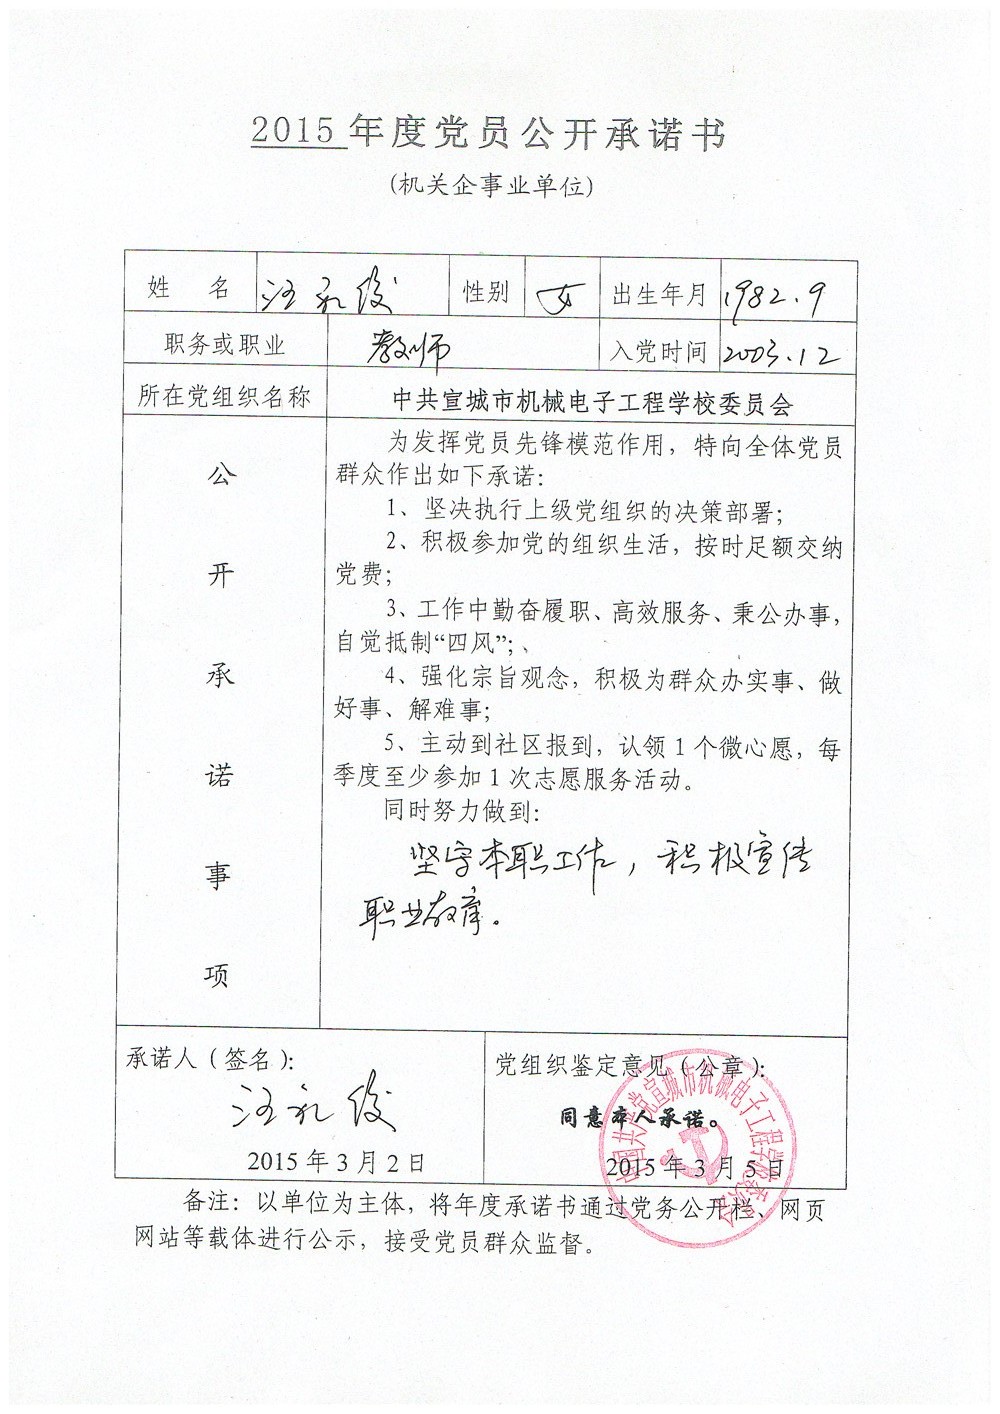 2015 年度党员公开承诺书
(机关企事业单位)
姓 名 汪永俊 性别 女 出生年月 1982.9
职务或职业 教师 入党时间 2003.12
所在党组织名称 中共宣城市机械电子工程学校委员会
公开承诺事项
为发挥党员先锋模范作用，特向全体党员
群众作出如下承诺：
1、坚决执行上级党组织的决策部署；
2、积极参加党的组织生活，按时足额交纳
党费；
3、工作中勤奋履职、高效服务、秉公办事，
自觉抵制“四风”；、
4、强化宗旨观念，积极为群众办实事、做
好事、解难事；
5、主动到社区报到，认领 1 个微心愿，每
季度至少参加 1 次志愿服务活动。
同时努力做到：
坚守本职工作，积极宣传
职业教育。
承诺人（签名）：
汪永俊
2015 年 3 月 2 日
党组织鉴定意见（公章）：
同意本人承诺。
2015 年 3 月 5 日
中国共产党宣城市机械电子工程学校委员会
备注：以单位为主体，将年度承诺书通过党务公开栏、网页
网站等载体进行公示，接受党员群众监督。